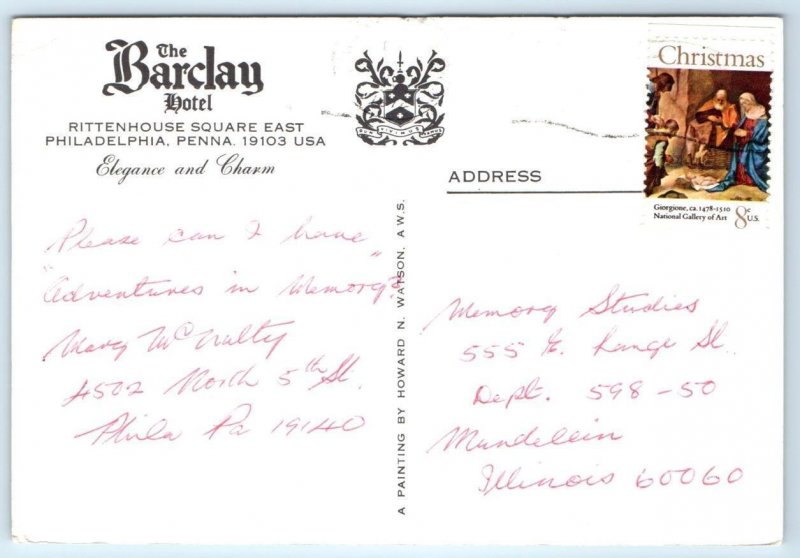 The
Barclay
Hotel
RITTENHOUSE SQUARE EAST
PHILADELPHIA, PENNA. 19103 USA
Elegance and Charm
Please can I have
"Adventures in Memory"?
Mary McNulty
4502 North 5th St.
Phila Pa 19140
A PAINTING BY HOWARD N. WATSON, A.W.S.
Christmas
Giorgione, ca. 1478-1510
National Gallery of Art
8c U.S.
ADDRESS
Memory Studies
555 E. Lange St.
Dept. 598-50
Mundelein
Illinois 60060